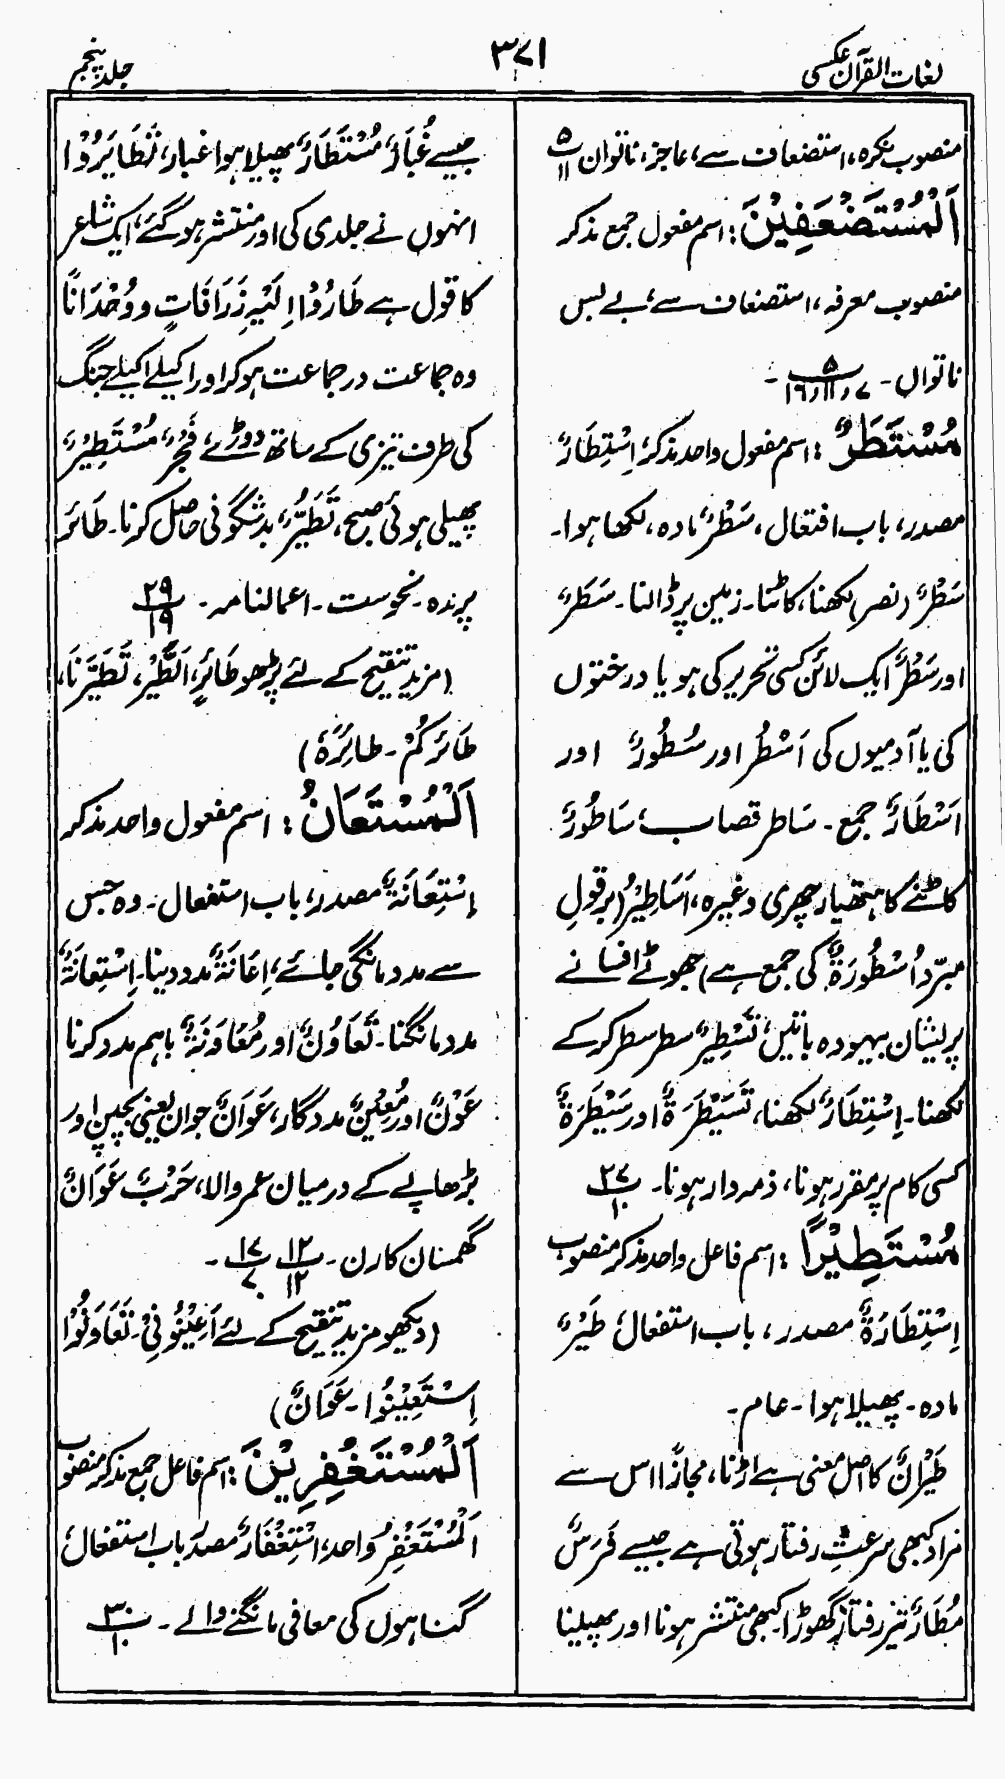 لغات القرآن عکسی
۳۷۱
جلد پنجم
منصوب نکرہ، استضعاف سے، عاجز، ناتواں ۵/۱۱
اَلْمُسْتَضْعَفِيْنَ: اسم مفعول جمع مذکر
منصوب معرفہ، استضعاف سے، بے بس
ناتواں۔ ۵/۷، ۱۱، ۱۶۔
مُسْتَطَرٌ: اسم مفعول واحد مذکر، اِسْتِطَارٌ
مصدر، باب افتعال، سَطْرٌ مادہ، لکھا ہوا۔
سَطْرٌ (نصر) لکھنا، کاٹنا۔ زمین پر ڈالنا۔ سَطَرٌ
اور سَطْرٌ ایک لائن کسی تحریر کی ہو یا درختوں
کی یا آدمیوں کی اَسْطُر اور سُطُورٌ اور
اَسْطَارٌ جمع۔ سَاطر قصاب، سَاطُورٌ
کاٹنے کا ہتھیار چھری وغیرہ، اَسَاطِيْرُ (بر قولِ
مبرّد اُسْطُورَةٌ کی جمع ہے) جھوٹے افسانے
پریشان بیہودہ باتیں، تَسْطِيْرٌ سطر سطر کرکے
لکھنا۔ اِسْتِطَارٌ لکھنا، تَسَيْطَرَةٌ اور سَيْطَرَةٌ
کسی کام پر مقرر ہونا، ذمہ دار ہونا۔ ۲۷/۱۰
مُسْتَطِيْرًا: اسم فاعل واحد مذکر منصوب
اِسْتِطَارَةٌ مصدر، باب استفعال، طَيْرٌ
مادہ۔ پھیلا ہوا۔ عام۔
طَيْرَانٌ کا اصل معنی ہے اڑنا، مجازًا اس سے
مراد کبھی سرعتِ رفتار ہوتی ہے جیسے فَرَسٌ
مُطَارٌ تیز رفتار گھوڑا۔ کبھی منتشر ہونا اور پھیلنا
جیسے غُبَارٌ مُسْتَطَارٌ پھیلا ہوا غبار، تَطَايَرُوْا
انہوں نے جلدی کی اور منتشر ہو گئے، ایک شاعر
کا قول ہے طَارُوْا اِلَيْهِ زَرَافَاتٍ و وُحْدَانًا
وہ جماعت در جماعت ہو کر اور اکیلے اکیلے جنگ
کی طرف تیزی کے ساتھ دوڑے، فَجْرٌ مُسْتَطِيْرٌ
پھیلی ہوئی صبح، تَطَيُّرٌ بدشگونی حاصل کرنا۔ طَائر
پرندہ۔ نحوست۔ اعمالنامہ۔ ۲۹/۱۹
(مزید تنقیح کے لئے پڑھو طَائِرٍ، اَلطَّيْرُ، تَطَيَّرْنَا،
طَائرکُمْ۔ طائِرَةٌ)
اَلْمُسْتَعَانُ: اسم مفعول واحد مذکر
اِسْتِعَانَةٌ مصدر، باب استفعال۔ وہ جس
سے مدد مانگی جائے، اِعَانَةٌ مدد دینا۔ اِسْتِعانَةٌ
مدد مانگنا۔ تَعَاوُنٌ اور مُعَاوَنَةٌ باہم مدد کرنا
عَوْنٌ اور مُعِيْنٌ مددگار، عَوَانٌ جوان یعنی بچپن اور
بڑھاپے کے درمیان عمر والا، حَرْبٌ عَوَانٌ
گھمسان کا رن۔ ۱۲/۱۲ ۱۷/۷۔
(دیکھو مزید تنقیح کے لئے اَعِيْنُوْنِيْ۔ تَعَاوَنُوْا
اِسْتَعِيْنُوا۔ عَوَانٌ)
اَلْمُسْتَغْفِرِيْنَ: اسم فاعل جمع مذکر منصوب
اَلْمُسْتَغْفِرُ واحد، اسْتِغْفَارٌ مصدر باب استفعال،
گناہوں کی معافی مانگنے والے۔ ۳۰/۱۰